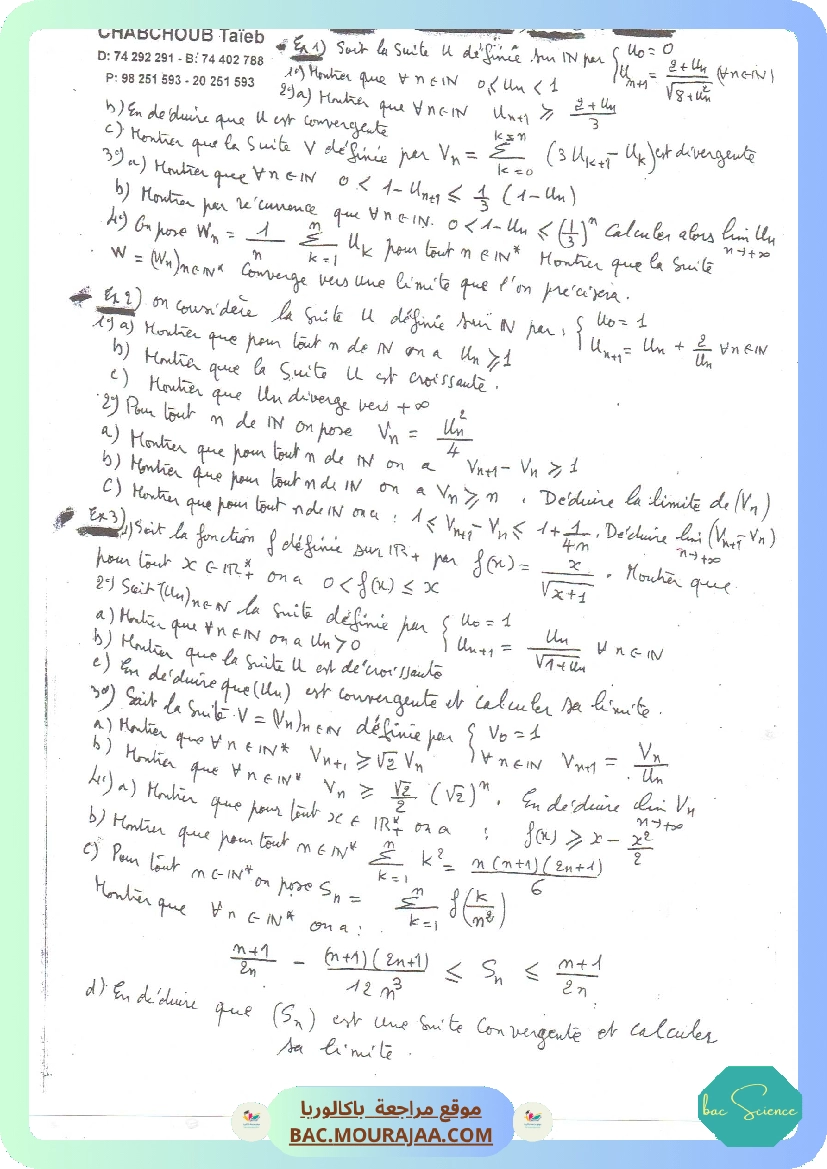 CHABCHOUB Taïeb
D: 74 292 291 - B: 74 402 788
P: 98 251 593 - 20 251 593
Ex 1) Soit la suite U définie sur IN par { U0 = 0
Un+1 = (2+Un)/√(8+Un²) (∀n∈IN)
1°) Montrer que ∀n∈IN 0 ≤ Un < 1
2°) a) Montrer que ∀n∈IN Un+1 ≥ (2+Un)/3
b) En déduire que U est convergente
c) Montrer que la suite V définie par Vn = Σ k=0 k=n (3Uk+1 - Uk) est divergente
3°) a) Montrer que ∀n∈IN 0 < 1-Un+1 ≤ 1/3 (1-Un)
b) Montrer par récurrence que ∀n∈IN. 0 < 1-Un ≤ (1/3)^n Calculer alors lim Un n→+∞
4°) On pose Wn = 1/n Σ k=1 n Uk pour tout n∈IN* Montrer que la suite
W = (Wn)n∈IN* Converge vers une limite que l'on précisera.
Ex 2) on considère la suite U définie sur IN par : { U0 = 1
Un+1 = Un + 2/Un ∀n∈IN
1°) a) Montrer que pour tout n de IN on a Un ≥ 1
b) Montrer que la suite U est croissante.
c) Montrer que Un diverge vers +∞
2°) Pour tout n de IN on pose Vn = Un²/4
a) Montrer que pour tout n de IN on a Vn+1 - Vn ≥ 1
b) Montrer que pour tout n de IN on a Vn ≥ n. Déduire la limite de (Vn)
c) Montrer que pour tout n de IN on a : 1 ≤ Vn+1 - Vn ≤ 1 + 1/4n. Déduire lim (Vn+1 - Vn) n→+∞
Ex 3) 1) Soit la fonction f définie sur IR+ par f(x) = x/√(x+1). Montrer que
pour tout x ∈ IR*+ on a 0 < f(x) ≤ x
2°) Soit (Un)n∈IN la suite définie par { U0 = 1
Un+1 = Un/√(1+Un) ∀n∈IN
a) Montrer que ∀n∈IN on a Un > 0
b) Montrer que la suite U est décroissante
c) En déduire que (Un) est convergente et calculer sa limite.
3°) Soit la suite V = (Vn)n∈IN définie par { V0 = 1
∀n∈IN Vn+1 = Vn/Un
a) Montrer que ∀n∈IN* Vn+1 ≥ √2 Vn
b) Montrer que ∀n∈IN* Vn ≥ √2/2 (√2)^n. En déduire lim Vn n→+∞
4°) a) Montrer que pour tout x ∈ IR*+ on a : f(x) ≥ x - x²/2
b) Montrer que pour tout n∈IN* Σ k=1 n k² = n(n+1)(2n+1)/6
c) Pour tout n∈IN* on pose Sn = Σ k=1 n f(k/n²)
Montrer que ∀n∈IN* on a :
(n+1)/2n - (n+1)(2n+1)/12n³ ≤ Sn ≤ (n+1)/2n
d) En déduire que (Sn) est une suite Convergente et calculer
sa limite.
bac Science
موقع مراجعة باكالوريا
BAC.MOURAJAA.COM